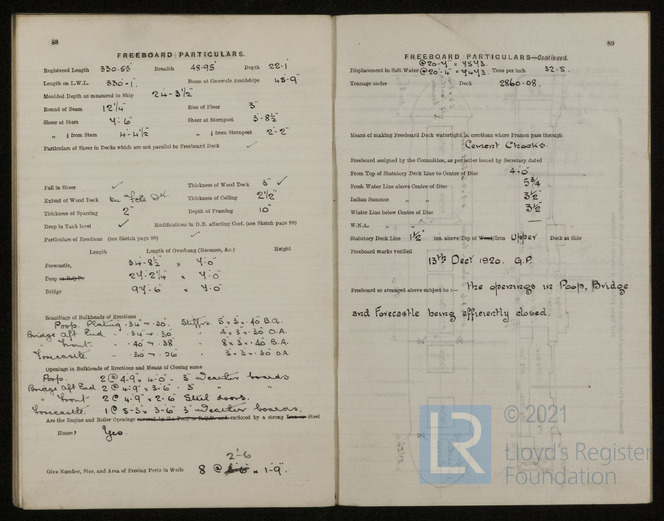 88
FREEBOARD PARTICULARS.
Registered Length 330.55 Breadth 48.95 Depth 22.1
Length on L.W.L. 330.1 Beam at Gunwale Amidships 48-9"
Moulded Depth as measured in Ship 24-3½"
Round of Beam 12¼" Rise of Floor 3"
Sheer at Stem Sheer at Sternpost 3-8½
" from Stem 4-4½ " from Sternpost 2-2"
Particulars of Sheer in Decks which are not parallel to Freeboard Deck
Fall in Sheer Thickness of Wood Deck 3"
Extent of Wood Deck Thickness of Ceiling 2½"
Thickness of Sparring 2" Depth of Framing 10"
Drop in Tank level Modifications in D.B. affecting Coef. (see Sketch page 99)
Particulars of Erections (see Sketch page 99)
Length Length of Overhang (Recesses, &c.) Height
Forecastle, 34-8½ × 7.0"
Poop 27-2¼ × 7.0"
Bridge 97-6" × 7.0"
Scantlings of Bulkheads of Erections
Poop. Plating .34 .30 Stiffrs 5 × 3 × .40 B.A.
Bridge Aft End " .34 .30 × 3 × .30 O.A.
" Front " .40 .38 8 × 3 × .40 B.A.
Forecastle .30 .26 3 × 3 × .30 O.A.
Openings in Bulkheads of Erections and Means of Closing same
Poop. 2 @ 4-9" × 4-0" - 3" weather boards
Bridge Aft End 2 @ 4-9" × 3-6" - 3" "
" Front 2 @ 4-9" × 2-6" Steel doors.
Forecastle 1 @ × 3-6" 3" weather boards.
Are the Engine and Boiler Openings covered by the Poop or R.Q.D. and enclosed by a strong Iron or Steel
House? Yes.
2-6
Give Number, Size, and Area of Freeing Ports in Wells 8 @ × 1-9".
89
FREEBOARD PARTICULARS—Continued.
Displacement in Salt Water Tons per inch 32.8
Tonnage under Deck 2860.08.
Means of making Freeboard Deck watertight in erections where Frames pass through
Cement Chocks.
Freeboard assigned by the Committee, as per letter issued by Secretary dated
From Top of Statutory Deck Line to Centre of Disc 4-0"
Fresh Water Line above Centre of Disc 5¾
Indian Summer " " 3½"
Winter Line below Centre of Disc 3½"
W.N.A. " "
Statutory Deck Line 1½" ins. above Top of Wood/Iron Upper Deck at Side
Freeboard Marks verified
13th Decr 1920. G.P.
Freeboard as arranged above subject to :— the openings in Poop, Bridge
and Forecastle being efficiently closed.
LR
© 2021
Lloyd's Register
Foundation